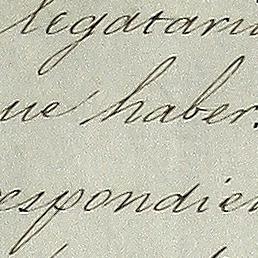 legatari
ue haber.
espondien